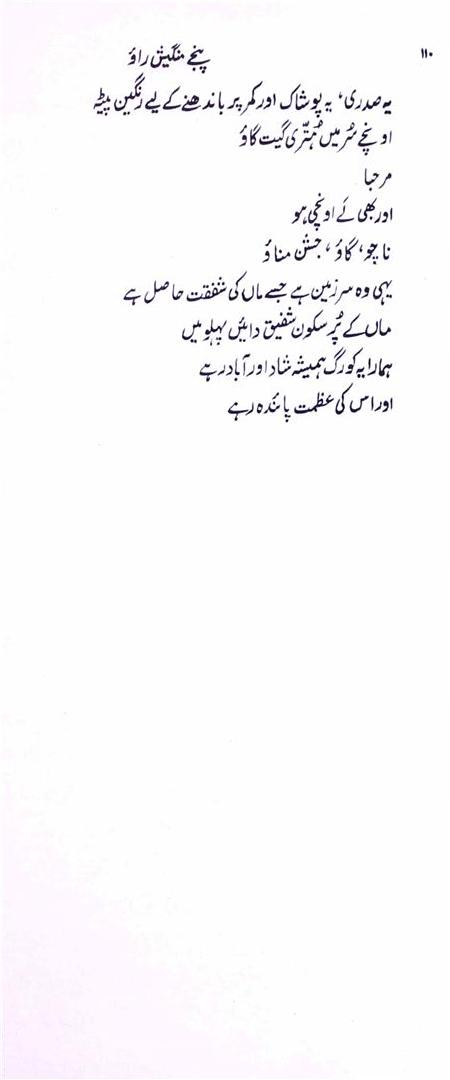 ۱۱۰
پنجے منگیش راؤ
یہ صدری، یہ پوشاک اور کمر پر باندھنے کے لیے رنگین پٹیہ
اونچے سُر میں ہُتّری گیت گاؤ
مرحبا
اور بھی لَے اونچی ہو
ناچو، گاؤ، جشن مناؤ
یہی وہ سرزمین ہے جسے ماں کی شفقت حاصل ہے
ماں کے پُر سکون شفیق دائیں پہلو میں
ہمارا یہ کورگ ہمیشہ شاد اور آباد رہے
اور اس کی عظمت پائندہ رہے